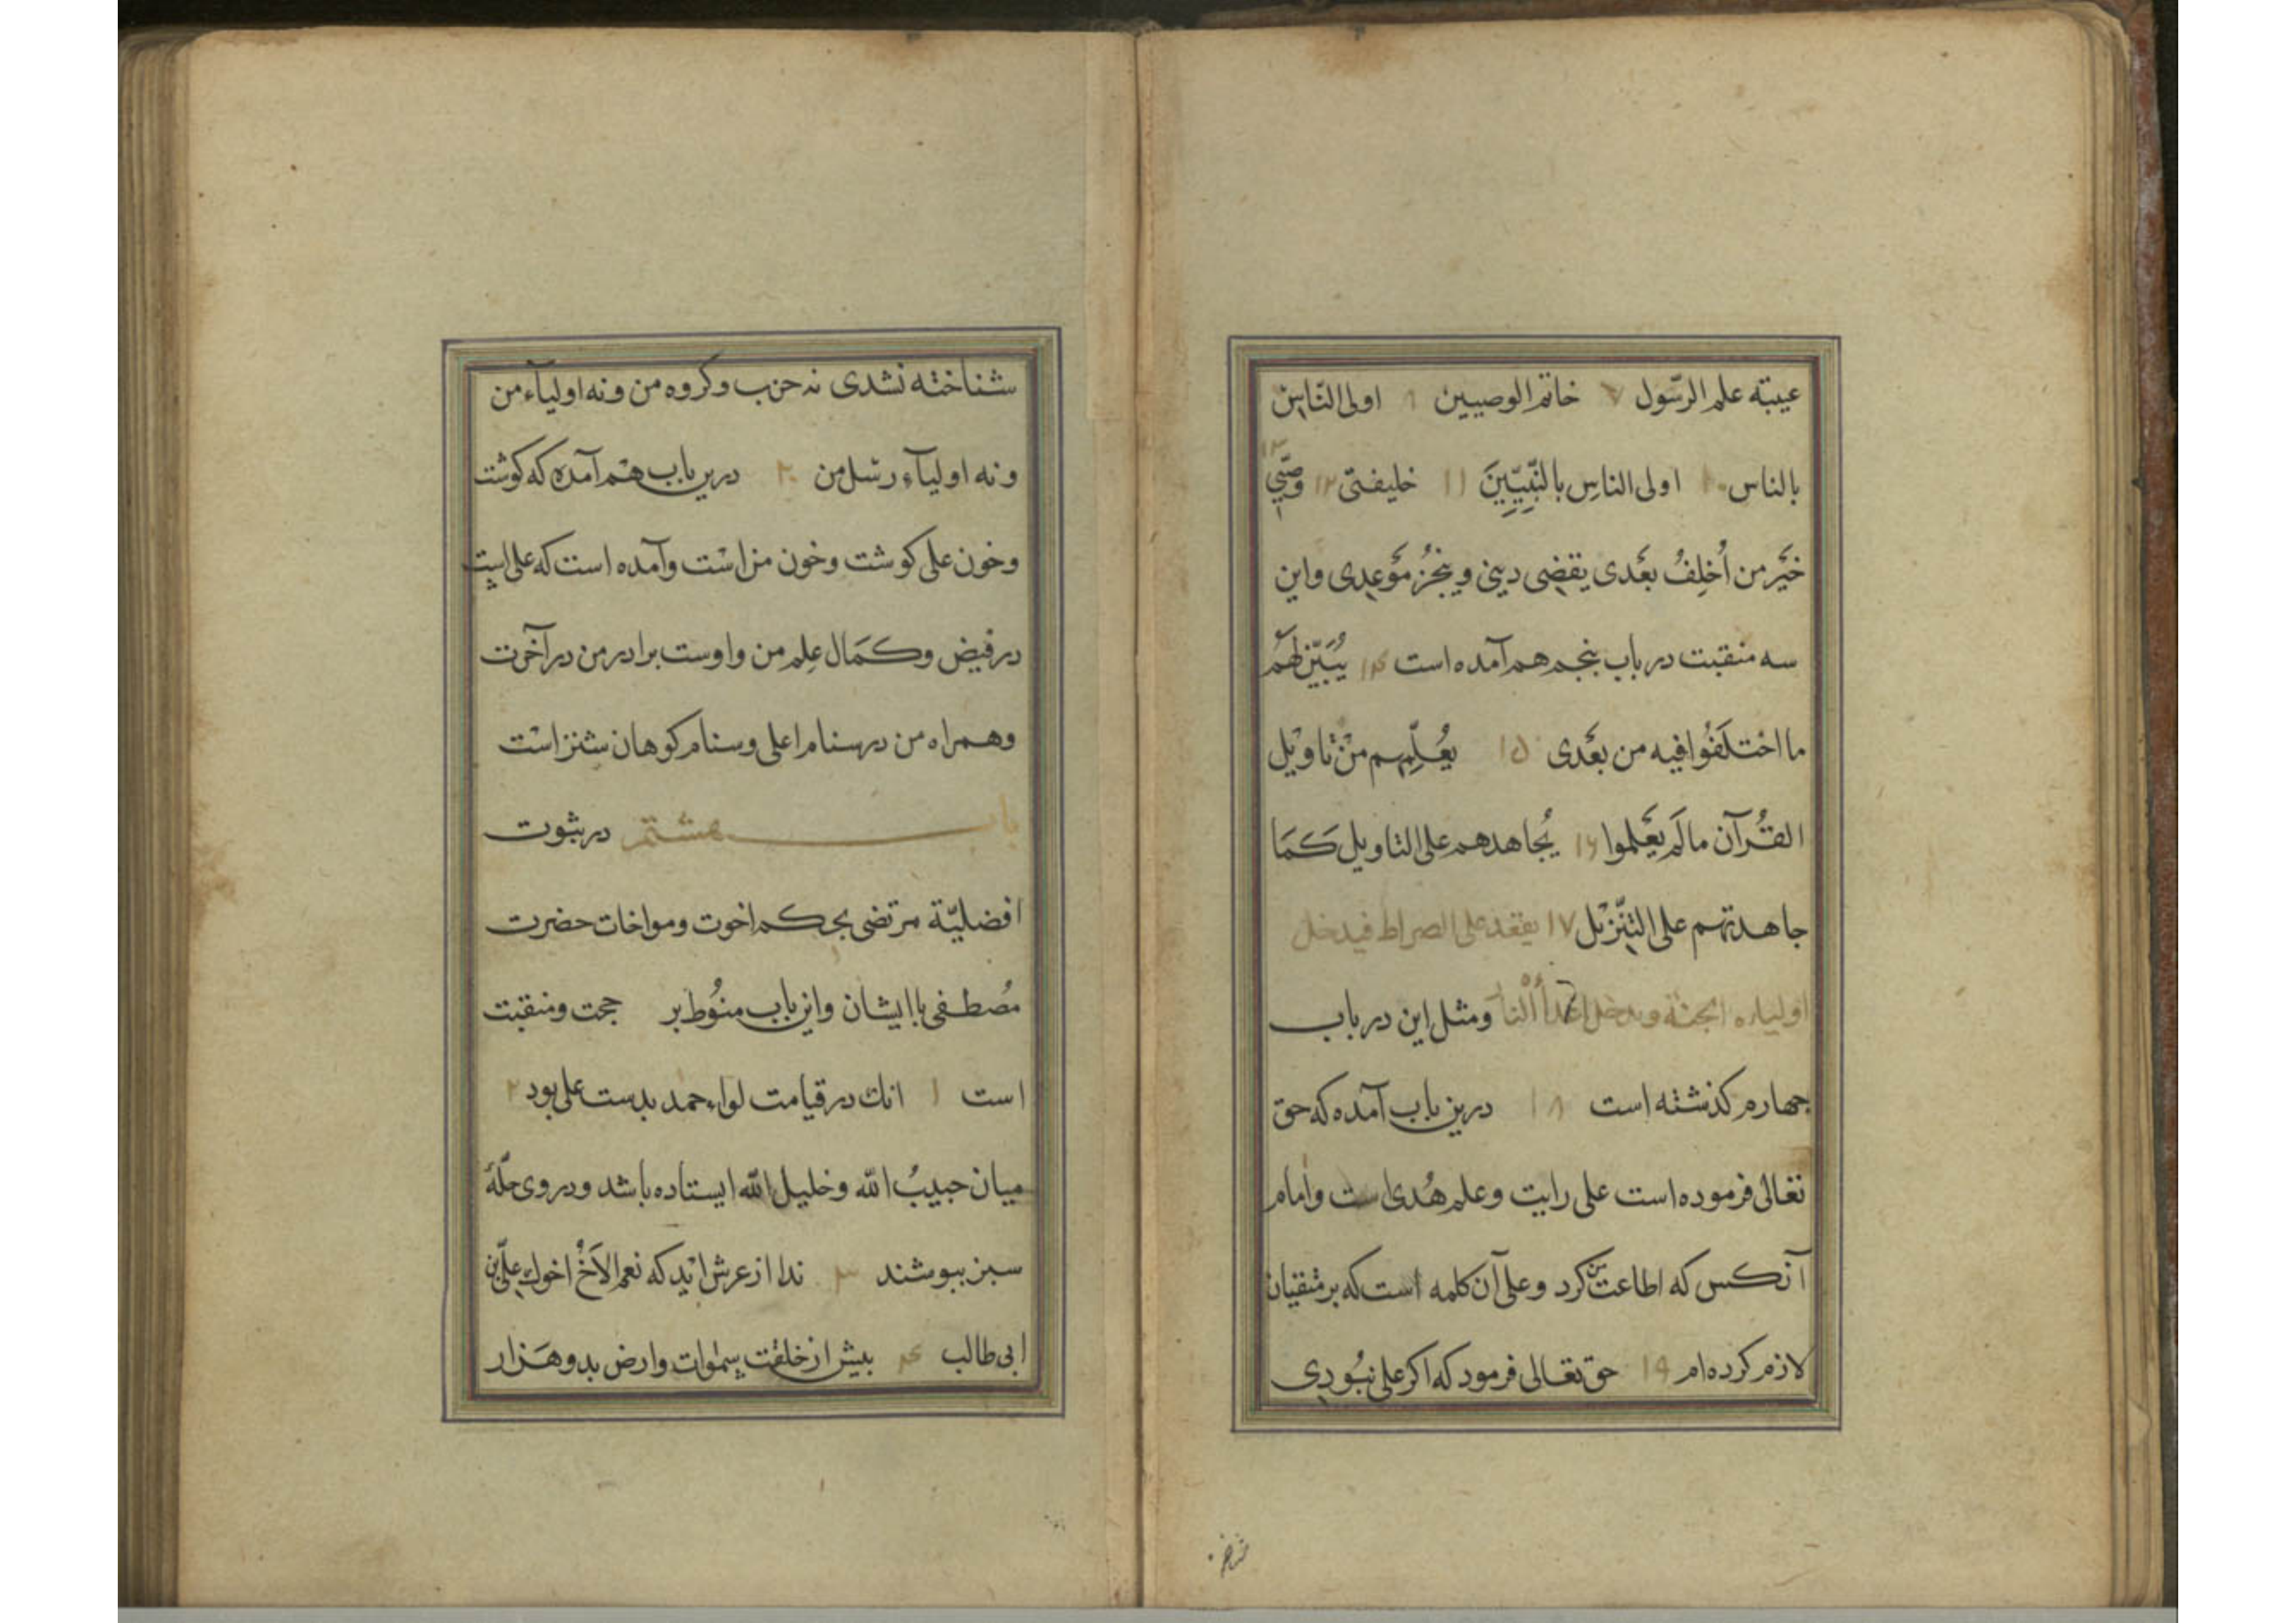 عیبته علم الرّسول ۷ خاتم الوصیین ۹ اولی النّاس
بالناس ۱۰ اولی الناسِ بالنّبیّینَ ۱۱ خلیفتی ۱۲ وصّیِ ۱۳
خَیْر من اُخلِفُ بعَدی یقضِی دینی وینجزُ مَوْعِدِی واین
سه منقبت در باب پنجم هم آمده است ۱۴ یُبَیّن لهُم
ما اخْتلَفُوا فیه من بعَدی ۱۵ یعُلّمِهم منْ تاویْل
القُرآن ما لَم یعَلموا ۱۶ یُجاهدهم علی التاویل کَمَا
جاهدتهم علی التنّزِیْل ۱۷ یقعد علی الصراط فیدخل
اولیاءه الجنّة ویدخل اعْداأُ النارَ ومثل این در باب
چهارم کذشته است ۱۸ درین باب آمده که حق
تعالی فرموده است علی رایت وعلم هُدی است وامام
آنکس که اطاعت من کرد وعلی آن کلمه است که بر متقیان
لازم کرده ام ۱۹ حق تعالی فرمود که اکر علی نبُودِی
شناخ
شناخته نشدی نه حزب وکروه من ونه اولیآء من
ونه اولیآء رسْل من ۲۰ درین باب هم آمده که کوشت
وخون علی کوشت وخون من است وآمده است که علی است
در فیض وکمَال عِلم من واوست برادر من در آخرت
وهمراه من در سنام اعلی وسنام کوهان شتر است
باب هشتم در ثبوت
افضلیّة مرتضی بحکم اخوت ومواخات حضرت
مُصطفی با ایشان واین باب منُوط بر حجت ومنقبت
است ۱ انك در قیامت لواء حمد بدست علی بود ۲
میان حبیبُ الله وخلیل الله ایستاده باشد ودر وی حلّهٔ
سبز بپوشند ۳ ندا از عرش اید که نعم الاَخْ اخوك علیّ بن
ابی طالب ۴ بیش از خلقت سموات وارض بدو هَزار